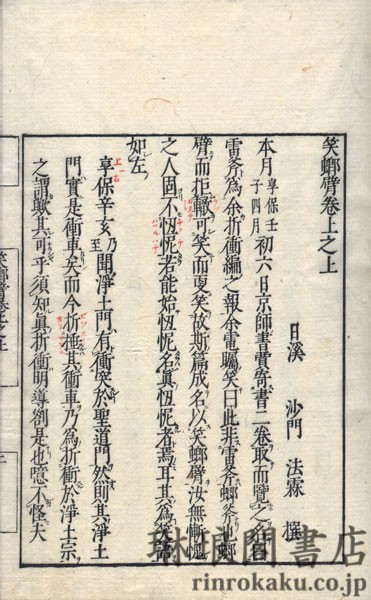 笑螂臂卷上之上
日溪 沙門 法霖 撰
本月享保壬子四月初六日京師書賈寄書二卷取而覽之名曰
雷斧為余折衝編之報余電矚笑曰此非雷斧螂斧也螂
臂而拒轍可笑而更笑故斯篇成名以笑螂臂汝無慚愧
之人固不忸怩若能始忸怩名真忸怩者焉耳其為笑端
如左
享保辛亥乃至開淨土門有衝突於聖道門然則其淨土
門實是衝車矣而今折其衝車乃為折衝於淨土宗
之謂歟其可乎須知眞折衝明導劄是也噫不怪夫
琳琅閣書店
rinrokaku.co.jp